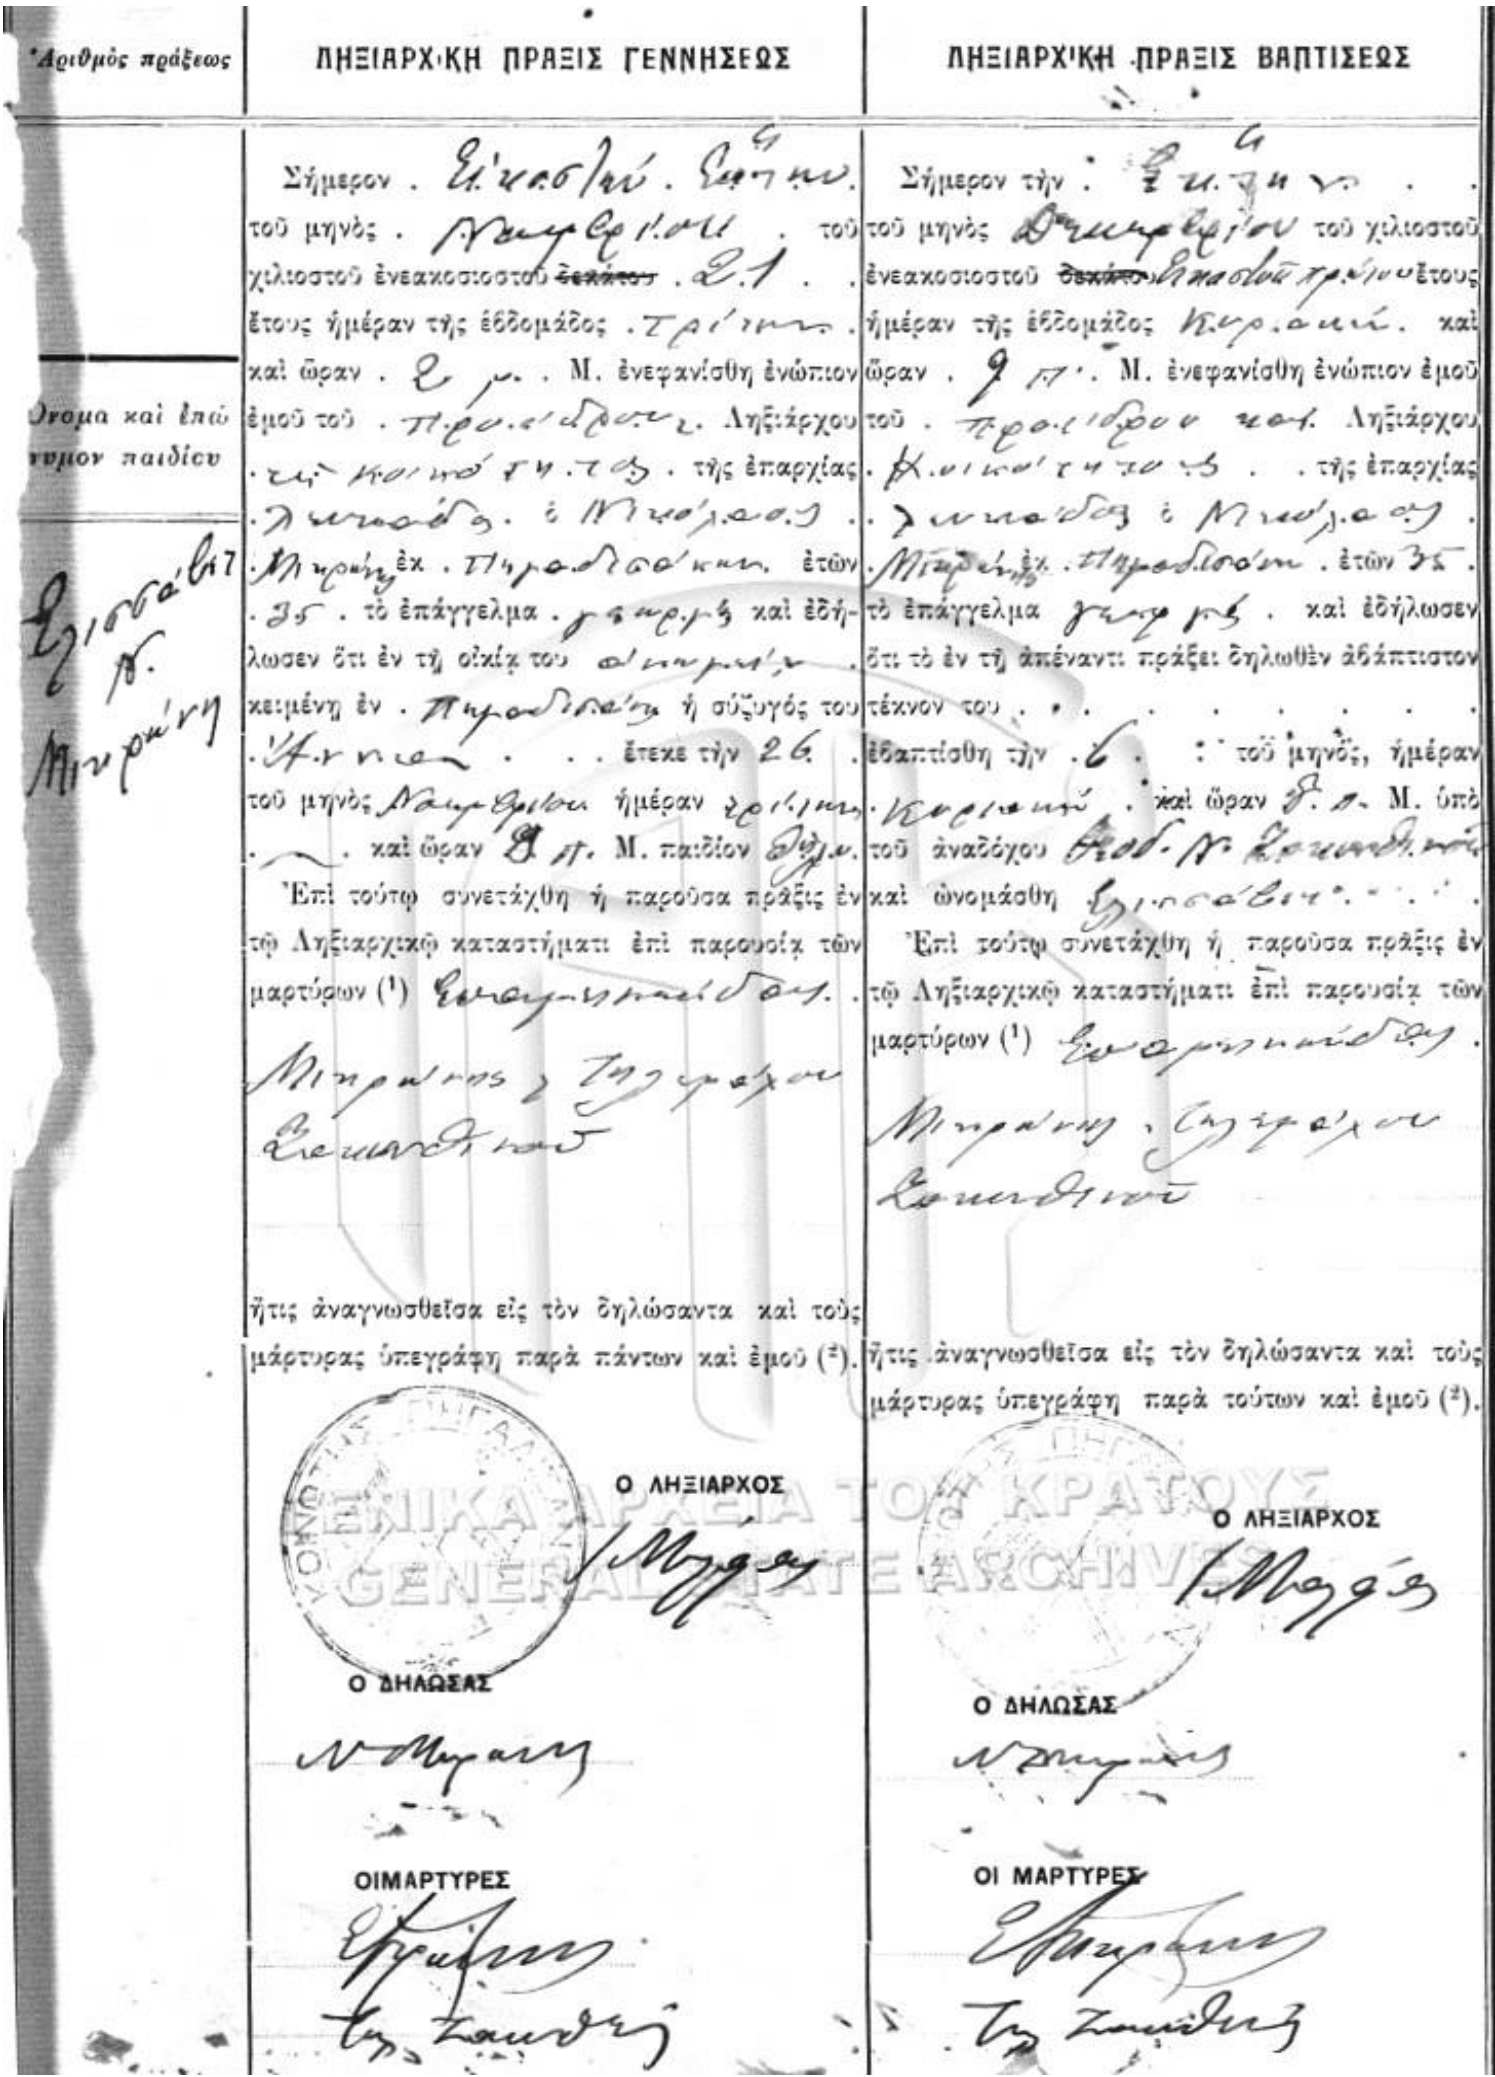 Ἀριθμὸς πράξεως
ΛΗΞΙΑΡΧΙΚΗ ΠΡΑΞΙΣ ΓΕΝΝΗΣΕΩΣ
Σήμερον . Εἰκοστήν . Ἕκτην .
τοῦ μηνὸς . Νοεμβρίου . τοῦ
χιλιοστοῦ ἐνεακοσιοστοῦ δεκάτου . 21 . .
ἔτους ἡμέραν τῆς ἑβδομάδος . Τρίτην .
καὶ ὥραν . 2 μ. . Μ. ἐνεφανίσθη ἐνώπιον
ἐμοῦ τοῦ . Προέδρου . Ληξιάρχου
. τῆς Κοινότητος . τῆς ἐπαρχίας
. Λευκάδος . ὁ Νικόλαος . .
. Μικρώνης ἐκ . ἐτῶν
. 35 . τὸ ἐπάγγελμα . γεωργὸς καὶ ἐδή-
λωσεν ὅτι ἐν τῇ οἰκίᾳ του .
κειμένῃ ἐν . ἡ σύζυγός του
. Ἄννα . . . ἔτεκε τὴν 26 .
τοῦ μηνὸς Νοεμβρίου ἡμέραν τρίτην .
. . καὶ ὥραν π. Μ. παιδίον θῆλυ .
Ἐπὶ τούτῳ συνετάχθη ἡ παροῦσα πρᾶξις ἐν
τῷ Ληξιαρχικῷ καταστήματι ἐπὶ παρουσίᾳ τῶν
μαρτύρων (¹) Επαμεινώνδας .
Μικρώνης Τηλεμάχου
Ζακυνθινοῦ
ἥτις ἀναγνωσθεῖσα εἰς τὸν δηλώσαντα καὶ τοὺς
μάρτυρας ὑπεγράφη παρὰ πάντων καὶ ἐμοῦ (²).
Ο ΛΗΞΙΑΡΧΟΣ
Ο ΔΗΛΩΣΑΣ
Ν Μικρώνης
ΟΙ ΜΑΡΤΥΡΕΣ
Ὄνομα καὶ ἐπώ
νυμον παιδίου
Ελισσάβετ
Ν.
Μικρώνη
ΛΗΞΙΑΡΧΙΚΗ ΠΡΑΞΙΣ ΒΑΠΤΙΣΕΩΣ
Σήμερον τὴν . Ἕκτην . .
τοῦ μηνὸς Δεκεμβρίου τοῦ χιλιοστοῦ
ἐνεακοσιοστοῦ δεκάτου Εἰκοστοῦ πρώτου ἔτους
ἡμέραν τῆς ἑβδομάδος Κυριακήν . καὶ
ὥραν . 9 π. . Μ. ἐνεφανίσθη ἐνώπιον ἐμοῦ
τοῦ . Προέδρου καὶ Ληξιάρχου
. Κοινότητος . . τῆς ἐπαρχίας
. Λευκάδος ὁ Νικόλαος .
. Μικρώνης ἐκ . ἐτῶν 35 .
τὸ ἐπάγγελμα γεωργὸς . καὶ ἐδήλωσεν
ὅτι τὸ ἐν τῇ ἀπέναντι πράξει δηλωθὲν ἀβάπτιστον
τέκνον του . . . . . . . .
ἐβαπτίσθη τὴν . 6 . . τοῦ μηνὸς, ἡμέραν
. Κυριακήν . καὶ ὥραν π. Μ. ὑπὸ
τοῦ ἀναδόχου Θεοδ. Ν. Ζακυνθινοῦ
καὶ ὠνομάσθη Ελισσάβετ . . . .
Ἐπὶ τούτῳ συνετάχθη ἡ παροῦσα πρᾶξις ἐν
τῷ Ληξιαρχικῷ καταστήματι ἐπὶ παρουσίᾳ τῶν
μαρτύρων (¹) Επαμεινώνδας .
Μικρώνης Τηλεμάχου
Ζακυνθινοῦ
ἥτις ἀναγνωσθεῖσα εἰς τὸν δηλώσαντα καὶ τοὺς
μάρτυρας ὑπεγράφη παρὰ τούτων καὶ ἐμοῦ (²).
Ο ΛΗΞΙΑΡΧΟΣ
Ο ΔΗΛΩΣΑΣ
Ν Μικρώνης
ΟΙ ΜΑΡΤΥΡΕΣ
ΓΕΝΙΚΑ ΑΡΧΕΙΑ ΤΟΥ ΚΡΑΤΟΥΣ
GENERAL STATE ARCHIVES